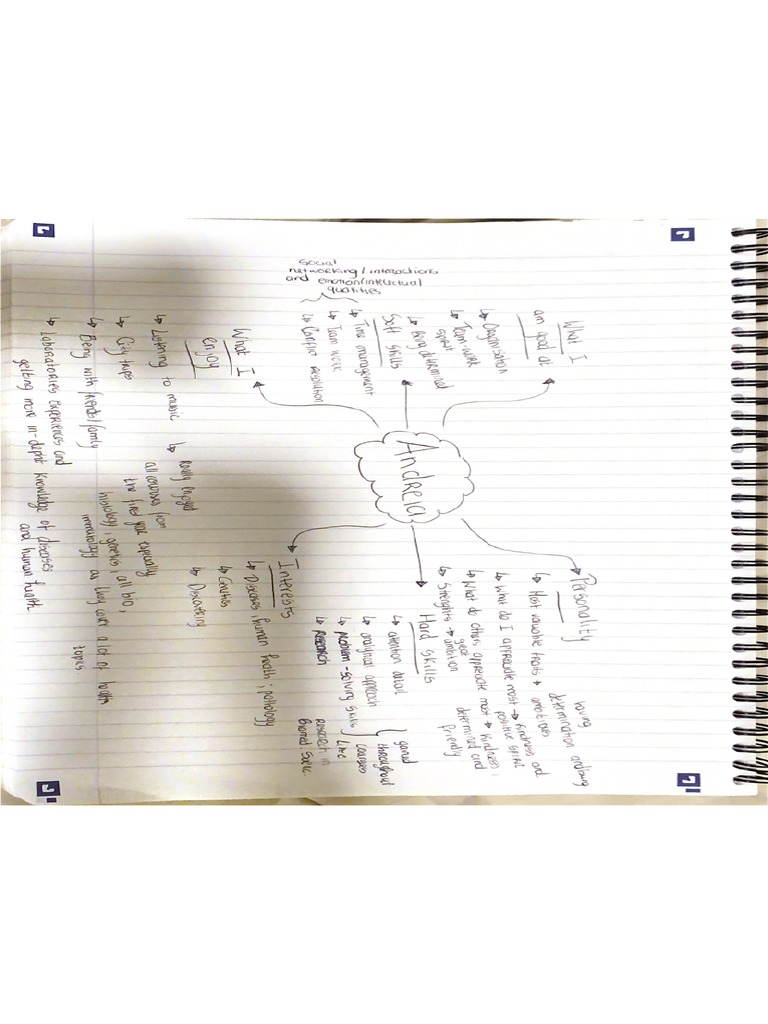 Andreia
What I
am good at
↳ Organisation
↳ Team-work
spirit
↳ Being determined
Soft skills
↳ Time management
↳ Team work
↳ Conflict resolution
social
networking/interactions
and emotion/intelectual
qualities
What I
enjoy
↳ Listening to music
↳ City trips
↳ Being with friends/family
↳ Laboratories experiences and
getting more in-depht knowledge of diseases
and human health
↳ Really enjoyed
all courses from
the first year especially
histology, genetics, all bio,
immunology as they cover a lot of health
topics
Personality
↳ Most valuable traits → ambitious
determination and being
loving
↳ What do I appreciate most → kindness and
positive spirit
↳ What do others appreciate most → kindness,
determined and
friendly
↳ Strenghts → great
ambition
Hard skills
↳ attention detail
↳ analytical approach
↳ problem-solving skills
↳ research
gained
throughout
courses
like
research in
Biomed Scien.
Interests
↳ Diseases, human health, pathology
↳ Genetics
↳